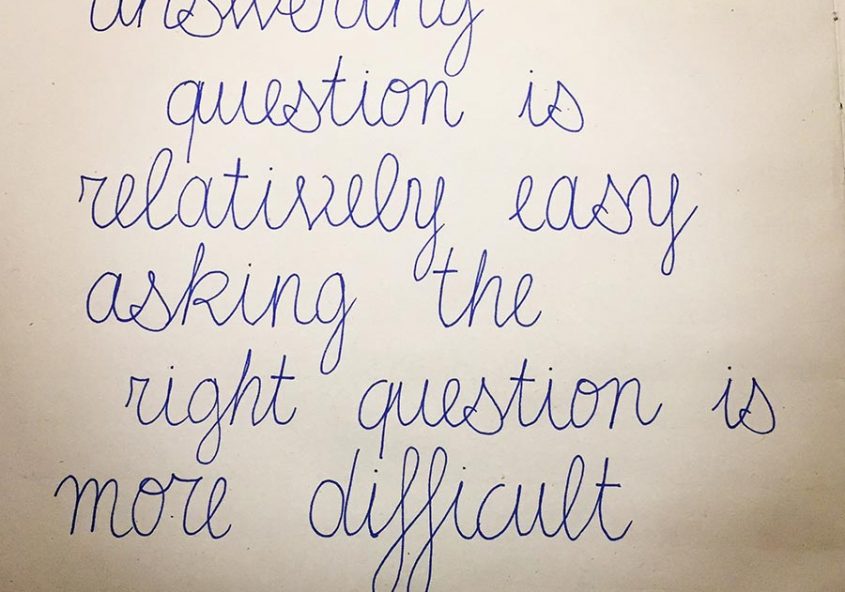 answering
question is
relatively easy
asking the
right question is
more difficult